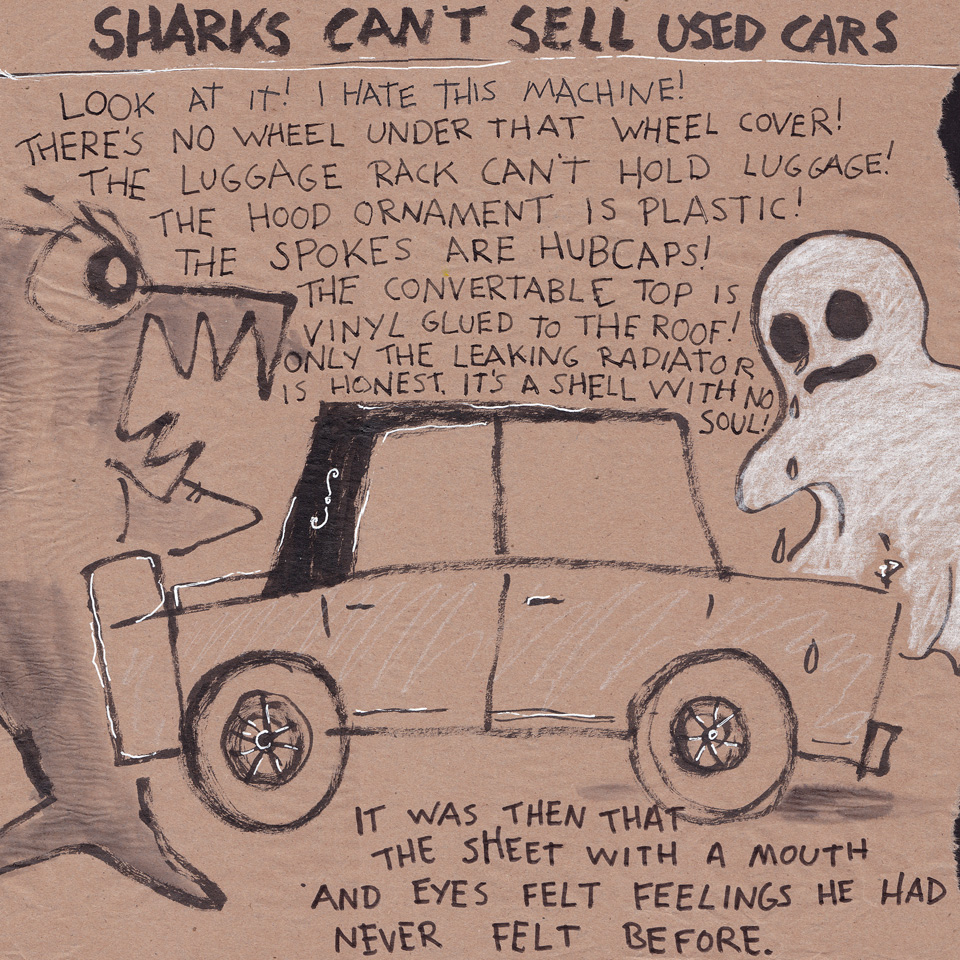 SHARKS CAN'T SELL USED CARS
LOOK AT IT! I HATE THIS MACHINE!
THERE'S NO WHEEL UNDER THAT WHEEL COVER!
THE LUGGAGE RACK CAN'T HOLD LUGGAGE!
THE HOOD ORNAMENT IS PLASTIC!
THE SPOKES ARE HUBCAPS!
THE CONVERTABLE TOP IS
VINYL GLUED TO THE ROOF!
ONLY THE LEAKING RADIATOR
IS HONEST. IT'S A SHELL WITH NO
SOUL!
IT WAS THEN THAT
THE SHEET WITH A MOUTH
AND EYES FELT FEELINGS HE HAD
NEVER FELT BEFORE.